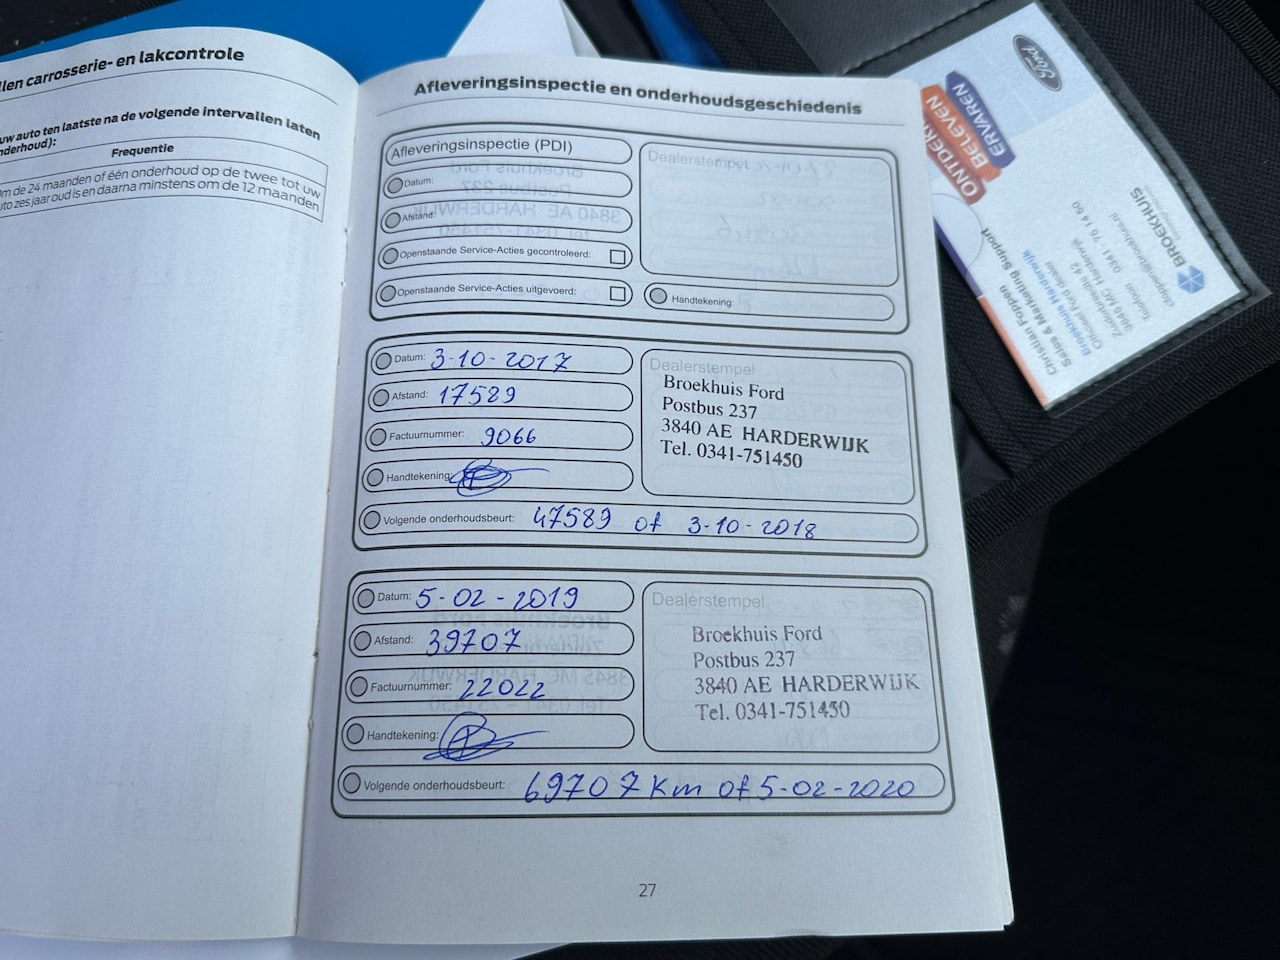 llen carrosserie- en lakcontrole
uw auto ten laatste na de volgende intervallen laten
nderhoud):
Frequentie
m de 24 maanden of één onderhoud op de twee tot uw
uto zes jaar oud is en daarna minstens om de 12 maanden
Afleveringsinspectie en onderhoudsgeschiedenis
Afleveringsinspectie (PDI)
Datum:
Afstand:
Openstaande Service-Acties gecontroleerd:
Openstaande Service-Acties uitgevoerd:
Dealerstempel
Handtekening:
Datum: 3-10-2017
Afstand: 17589
Factuurnummer: 9066
Handtekening:
Volgende onderhoudsbeurt: 47589 of 3-10-2018
Dealerstempel
Broekhuis Ford
Postbus 237
3840 AE HARDERWIJK
Tel. 0341-751450
Datum: 5-02-2019
Afstand: 39707
Factuurnummer: 22022
Handtekening:
Volgende onderhoudsbeurt: 69707 Km of 5-02-2020
Dealerstempel
Broekhuis Ford
Postbus 237
3840 AE HARDERWIJK
Tel. 0341-751450
27
Ford
BELEVEN
ERVAREN
BROEKHUIS
Christian Foppen
Sales & Marketing Support
Broekhuis Harderwijk
Officieel Ford dealer
3846 MC Harderwijk
Telefoon 0341 - 75 14 50